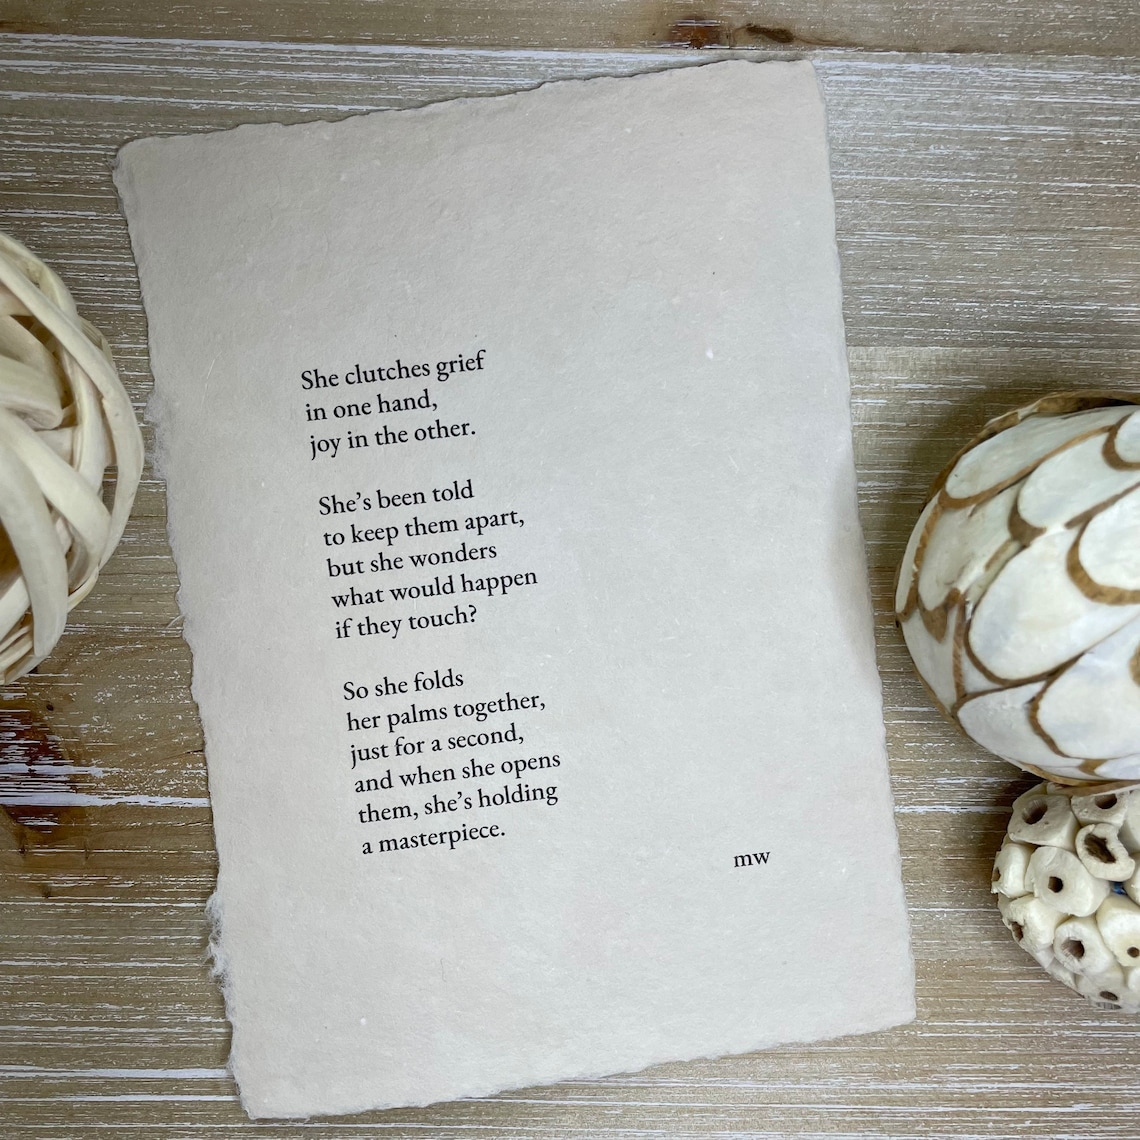 She clutches grief
in one hand,
joy in the other.
She’s been told
to keep them apart,
but she wonders
what would happen
if they touch?
So she folds
her palms together,
just for a second,
and when she opens
them, she’s holding
a masterpiece.
mw